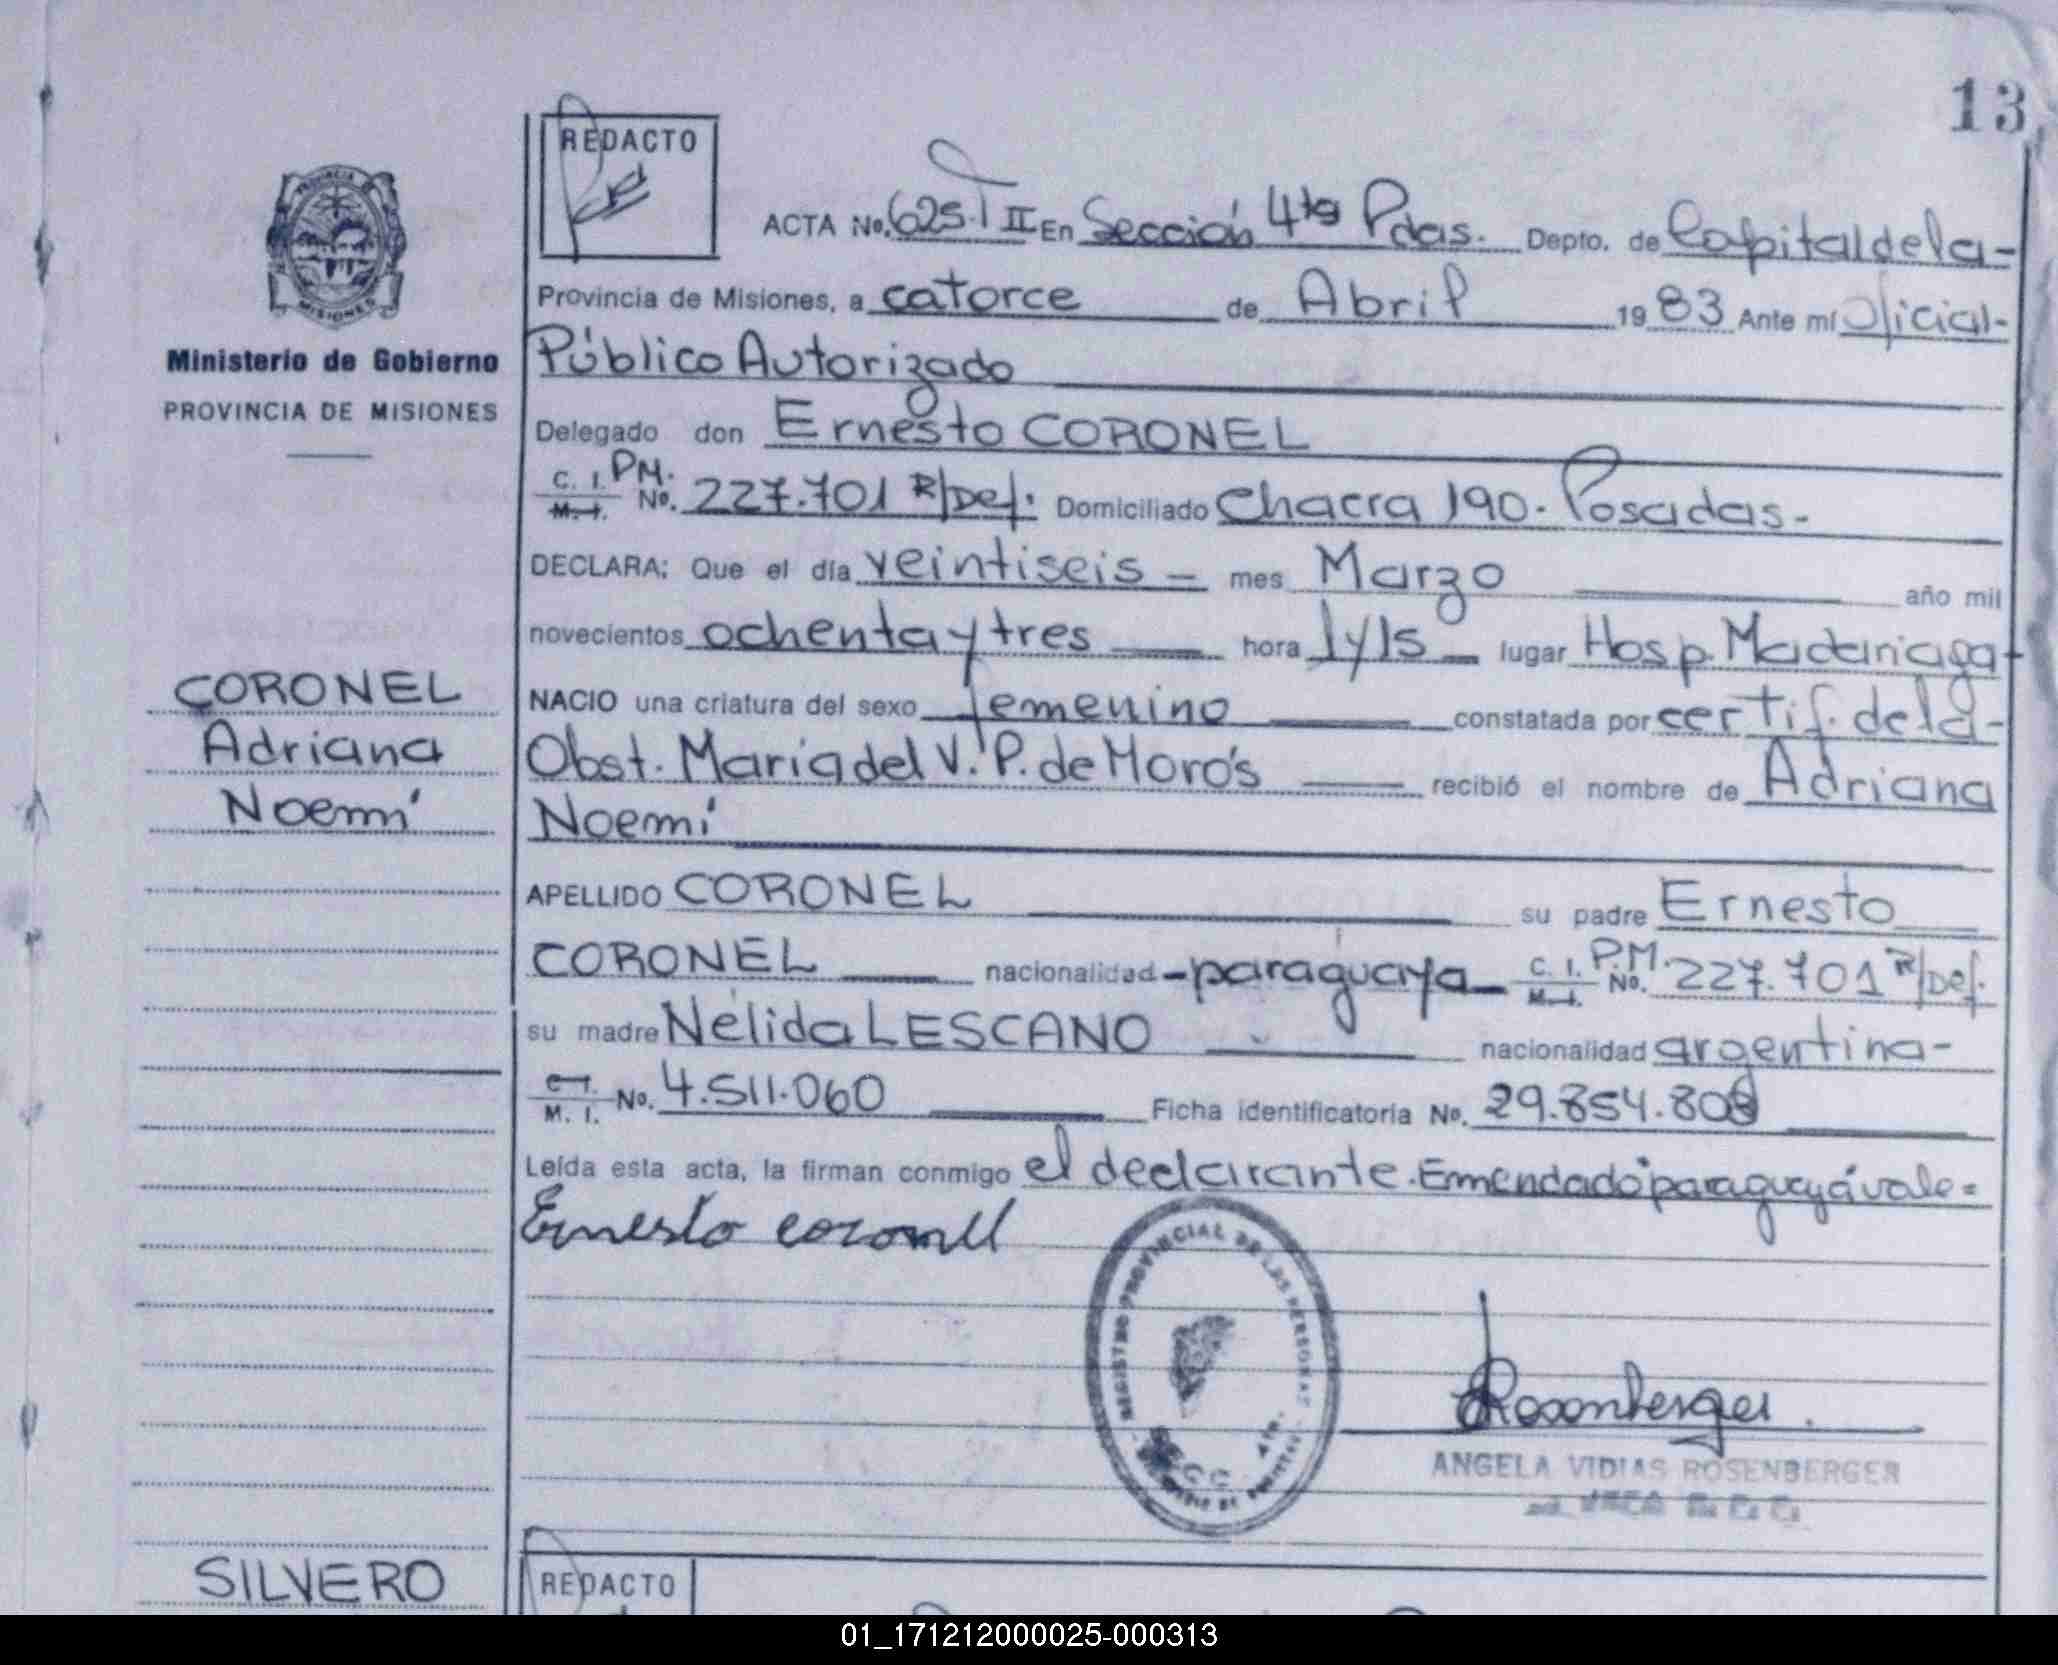 13
REDACTO
ACTA No. 625. T II En Sección 4ta Pdas. Depto. de Capital de la-
Provincia de Misiones, a catorce de Abril 1983 Ante mí Oficial-
Público Autorizado
Delegado don Ernesto CORONEL
C. I. M. I. PM. No. 227.701 R/Def. Domiciliado Chacra 190. Posadas-
DECLARA: Que el día veintiseis - mes Marzo año mil
novecientos ochenta y tres hora 1y15 lugar Hosp. Madariaga
NACIO una criatura del sexo femenino constatada por certif. de la-
Obst. María del V. P. de Moro's recibió el nombre de Adriana
Noemí
APELLIDO CORONEL su padre Ernesto
CORONEL nacionalidad -paraguaya- C. I. M. I. P.M. No. 227.701 R/Def.
su madre Nélida LESCANO nacionalidad argentina-
C. I. M. I. No. 4.511.060 Ficha identificatoria No. 29.854.808
Leída esta acta, la firman conmigo el declarante. Emendado "paraguaya" vale=
Ernesto coronel
REGISTRO PROVINCIAL DE LAS PERSONAS
SECC. 4ta.
Rosenberger
ANGELA VIDIAS ROSENBERGER
PROVINCIA DE
MISIONES
Ministerio de Gobierno
PROVINCIA DE MISIONES
CORONEL
Adriana
Noemí
SILVERO
REDACTO
01_171212000025-000313